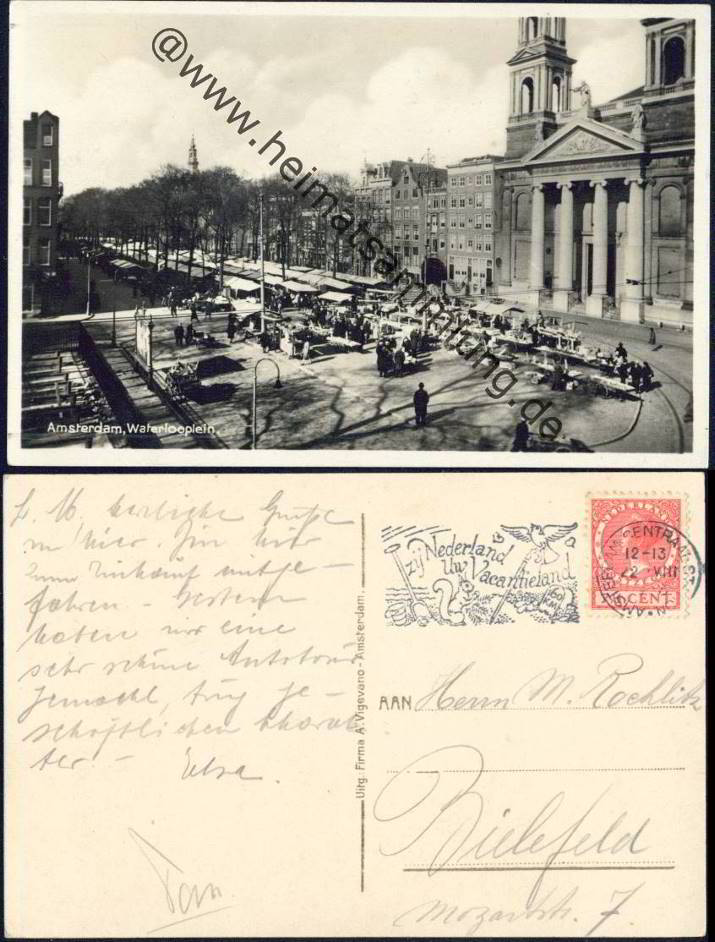 @www.heimatsammlung.de
Amsterdam, Waterlooplein.
L. M. herzliche Grüße
v. hier. Bin hier
zum Einkauf mitge-
fahren - Gestern
haben wir eine
sehr schöne Autotour
gemacht, trug ge-
schäftlichen Charak-
ter. -
Uitg.: Firma A. Vigevano - Amsterdam.
zij Nederland
Uw Vacantieland
AMSTERDAM CENTRAAL STATION
12-13
2 VIII
NEDERLAND
CENT
AAN Herrn M. Rochlitz
Bielefeld
Mozartstr. 7.